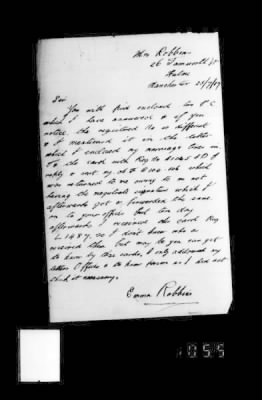 Mrs Robbins
26 Tamworth St
Hulme
Manchester 25/7/17
Sir
You will find enclosed two P C
which I have answered & if you
notice the registered No is different
& I mentioned it in the letter
which I enclosed my marriage lines in
the card with Reg No
was returned to me owing to me not
having the magistrate signature which I
afterwards got & forwarded the same
on to your office but one day
afterwards I received the card Reg
L1487 so I don't know who
received them but may be you can get
to know by these cards, I only addressed my
letters Officer & to know person as I did not
think it necessary.
Emma Robbins
1055